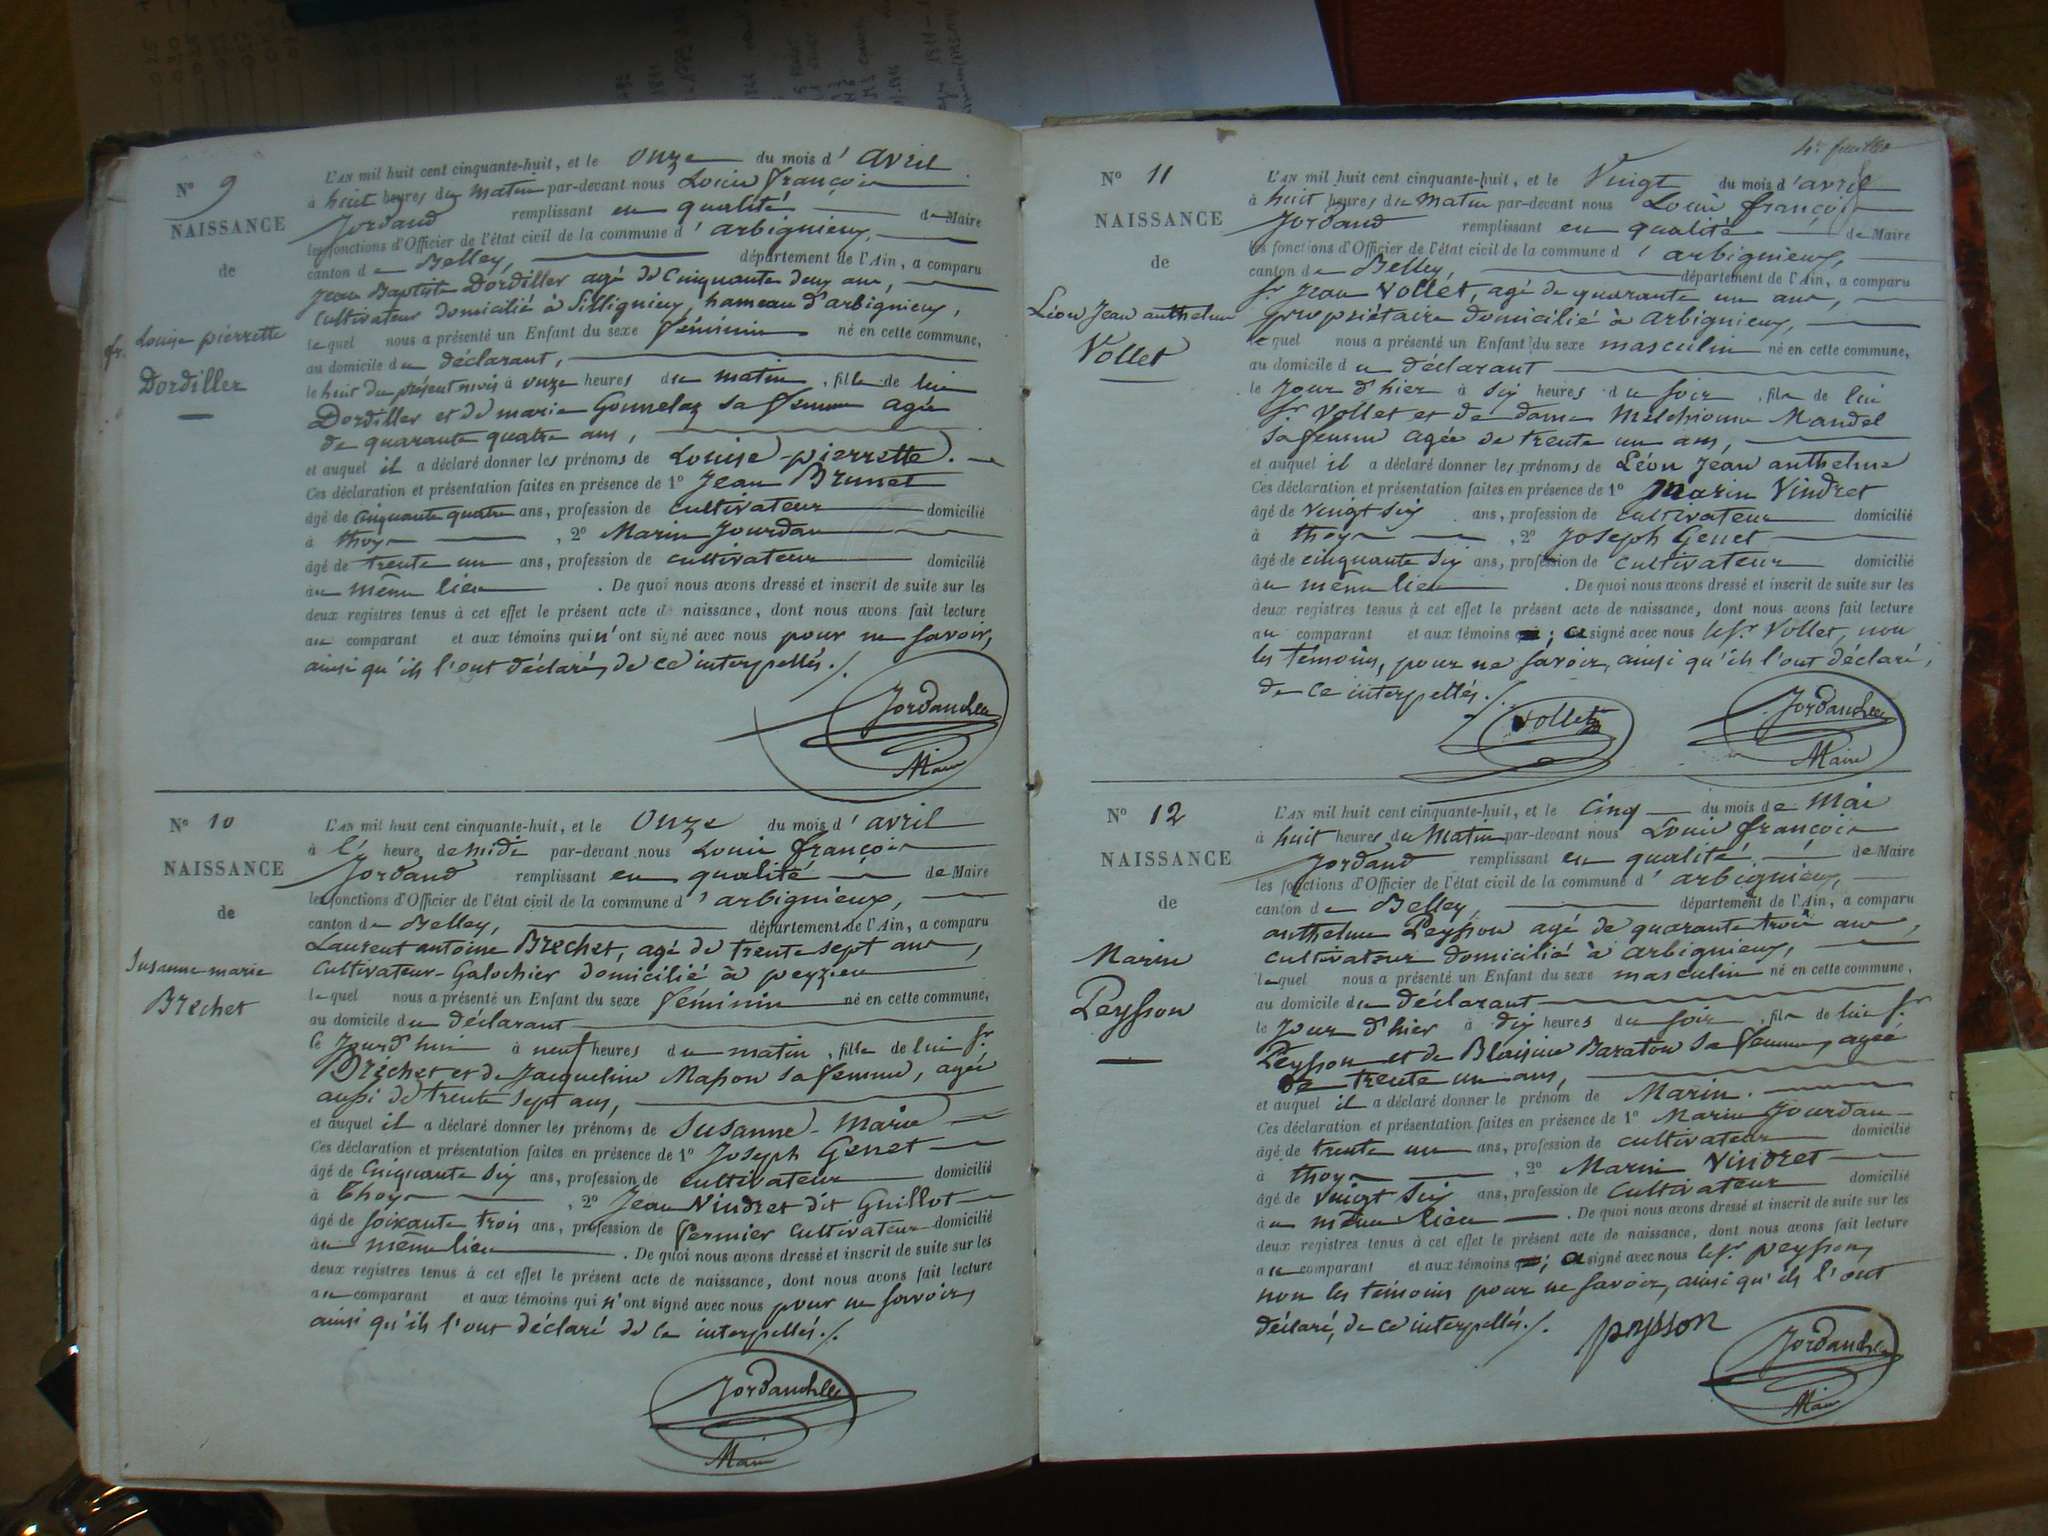 N° 9
NAISSANCE
de
Louise pierrette
Dordiller
L'AN mil huit cent cinquante-huit, et le onze du mois d'avril
à huit heures du matin par-devant nous Louis françois
Jordand remplissant en qualité de Maire
les fonctions d'Officier de l'état civil de la commune d'arbignieux,
canton de Belley, département de l'Ain, a comparu
Jean Baptiste Dordiller agé de Cinquante deux ans,
cultivateur domicilié à Sillignieux, hameau d'arbignieux,
lequel nous a présenté un Enfant du sexe féminin né en cette commune,
au domicile du déclarant,
le huit du présent mois à onze heures du matin, fille de lui
Dordiller et de marie Gonnelaz sa femme agée
de quarante quatre ans,
et auquel il a déclaré donner les prénoms de Louise-pierrette.
Ces déclaration et présentation faites en présence de 1° Jean Brunet
âgé de cinquante quatre ans, profession de cultivateur domicilié
à thoys, 2° Marin Jourdan
âgé de trente un ans, profession de cultivateur domicilié
au même lieu. De quoi nous avons dressé et inscrit de suite sur les
deux registres tenus à cet effet le présent acte de naissance, dont nous avons fait lecture
au comparant et aux témoins qui n'ont signé avec nous pour ne savoir,
ainsi qu'ils l'ont déclaré, de ce interpellés./.
Maire
N° 10
NAISSANCE
de
Susanne-marie
Brechet
L'AN mil huit cent cinquante-huit, et le onze du mois d'avril
à l' heure de midi par-devant nous Louis françois
Jordand remplissant en qualité de Maire
les fonctions d'Officier de l'état civil de la commune d'arbignieux,
canton de Belley, département de l'Ain, a comparu
Laurent antoine Brechet, agé de trente sept ans,
cultivateur-Galochier domicilié à peyzieu
lequel nous a présenté un Enfant du sexe féminin né en cette commune,
au domicile du déclarant
le jourd'hui à neuf heures du matin, fille de lui sr
Bréchet et de Jacqueline Masson sa femme, agée
aussi de trente sept ans,
et auquel il a déclaré donner les prénoms de Susanne-Marie
Ces déclaration et présentation faites en présence de 1° Joseph Genet
âgé de Cinquante six ans, profession de cultivateur domicilié
à Thoys, 2° Jean Vindret dit Guillot
âgé de soixante trois ans, profession de fermier cultivateur domicilié
au même lieu. De quoi nous avons dressé et inscrit de suite sur les
deux registres tenus à cet effet le présent acte de naissance, dont nous avons fait lecture
au comparant et aux témoins qui n'ont signé avec nous pour ne savoir,
ainsi qu'ils l'ont déclaré de ce interpellés./.
Maire
N° 11
NAISSANCE
de
Léon Jean anthelme
Vollet
L'AN mil huit cent cinquante-huit, et le Vingt du mois d'avril
à huit heures du matin par-devant nous Louis françois
Jordand remplissant en qualité de Maire
les fonctions d'Officier de l'état civil de la commune d'arbignieux,
canton de Belley, département de l'Ain, a comparu
sr Jean Vollet, agé de quarante un ans,
propriétaire domicilié à arbignieux,
lequel nous a présenté un Enfant du sexe masculin né en cette commune,
au domicile du déclarant
le jour d'hier à six heures du soir, fils de lui
sr Vollet et de dame Melchionne Mandel
sa femme agée de trente un ans,
et auquel il a déclaré donner les prénoms de Léon Jean anthelme
Ces déclaration et présentation faites en présence de 1° Marin Vindret
âgé de vingt six ans, profession de cultivateur domicilié
à thoys, 2° Joseph Genet
âgé de cinquante six ans, profession de cultivateur domicilié
au même lieu. De quoi nous avons dressé et inscrit de suite sur les
deux registres tenus à cet effet le présent acte de naissance, dont nous avons fait lecture
au comparant et aux témoins; a signé avec nous le sr Vollet, non
les témoins, pour ne savoir, ainsi qu'ils l'ont déclaré,
de ce interpellés./.
Vollet
Maire
N° 12
NAISSANCE
de
Marin
Peysson
L'AN mil huit cent cinquante-huit, et le cinq du mois de Mai
à huit heures du Matin par-devant nous Louis françois
Jordand remplissant en qualité de Maire
les fonctions d'Officier de l'état civil de la commune d'arbignieux,
canton de Belley, département de l'Ain, a comparu
anthelme Peysson agé de quarante trois ans,
cultivateur domicilié à arbignieux,
lequel nous a présenté un Enfant du sexe masculin né en cette commune,
au domicile du déclarant
le jour d'hier à dix heures du soir, fils de lui sr
Peysson et de Blaisine Baraton sa femme, agée
de trente un ans,
et auquel il a déclaré donner le prénom de Marin.
Ces déclaration et présentation faites en présence de 1° Marin Jourdan
âgé de trente un ans, profession de cultivateur domicilié
à thoys, 2° Marin Vindret
âgé de vingt six ans, profession de cultivateur domicilié
au même lieu. De quoi nous avons dressé et inscrit de suite sur les
deux registres tenus à cet effet le présent acte de naissance, dont nous avons fait lecture
au comparant et aux témoins; a signé avec nous le sr peysson,
non les témoins pour ne savoir, ainsi qu'ils l'ont
déclaré, de ce interpellés./.
peysson
Maire